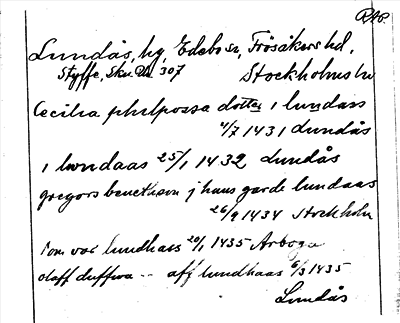 Lundås, hg, Edebo sn, Frösåkers hd,
Styffe, Sku Un. 307 Stockholms ln
Cecilia philpossa dotter i lundaas
4/7 1431 Lundås
i lwndaas 25/1 1432 Lundås
gregors benctisson j hans garde lundaas
26/9 1434 Stockholm
Tom var lundhaas 20/1 1435 Arboga
olaff duffwa -- aff lundhaas 6/3 1435
Lundås